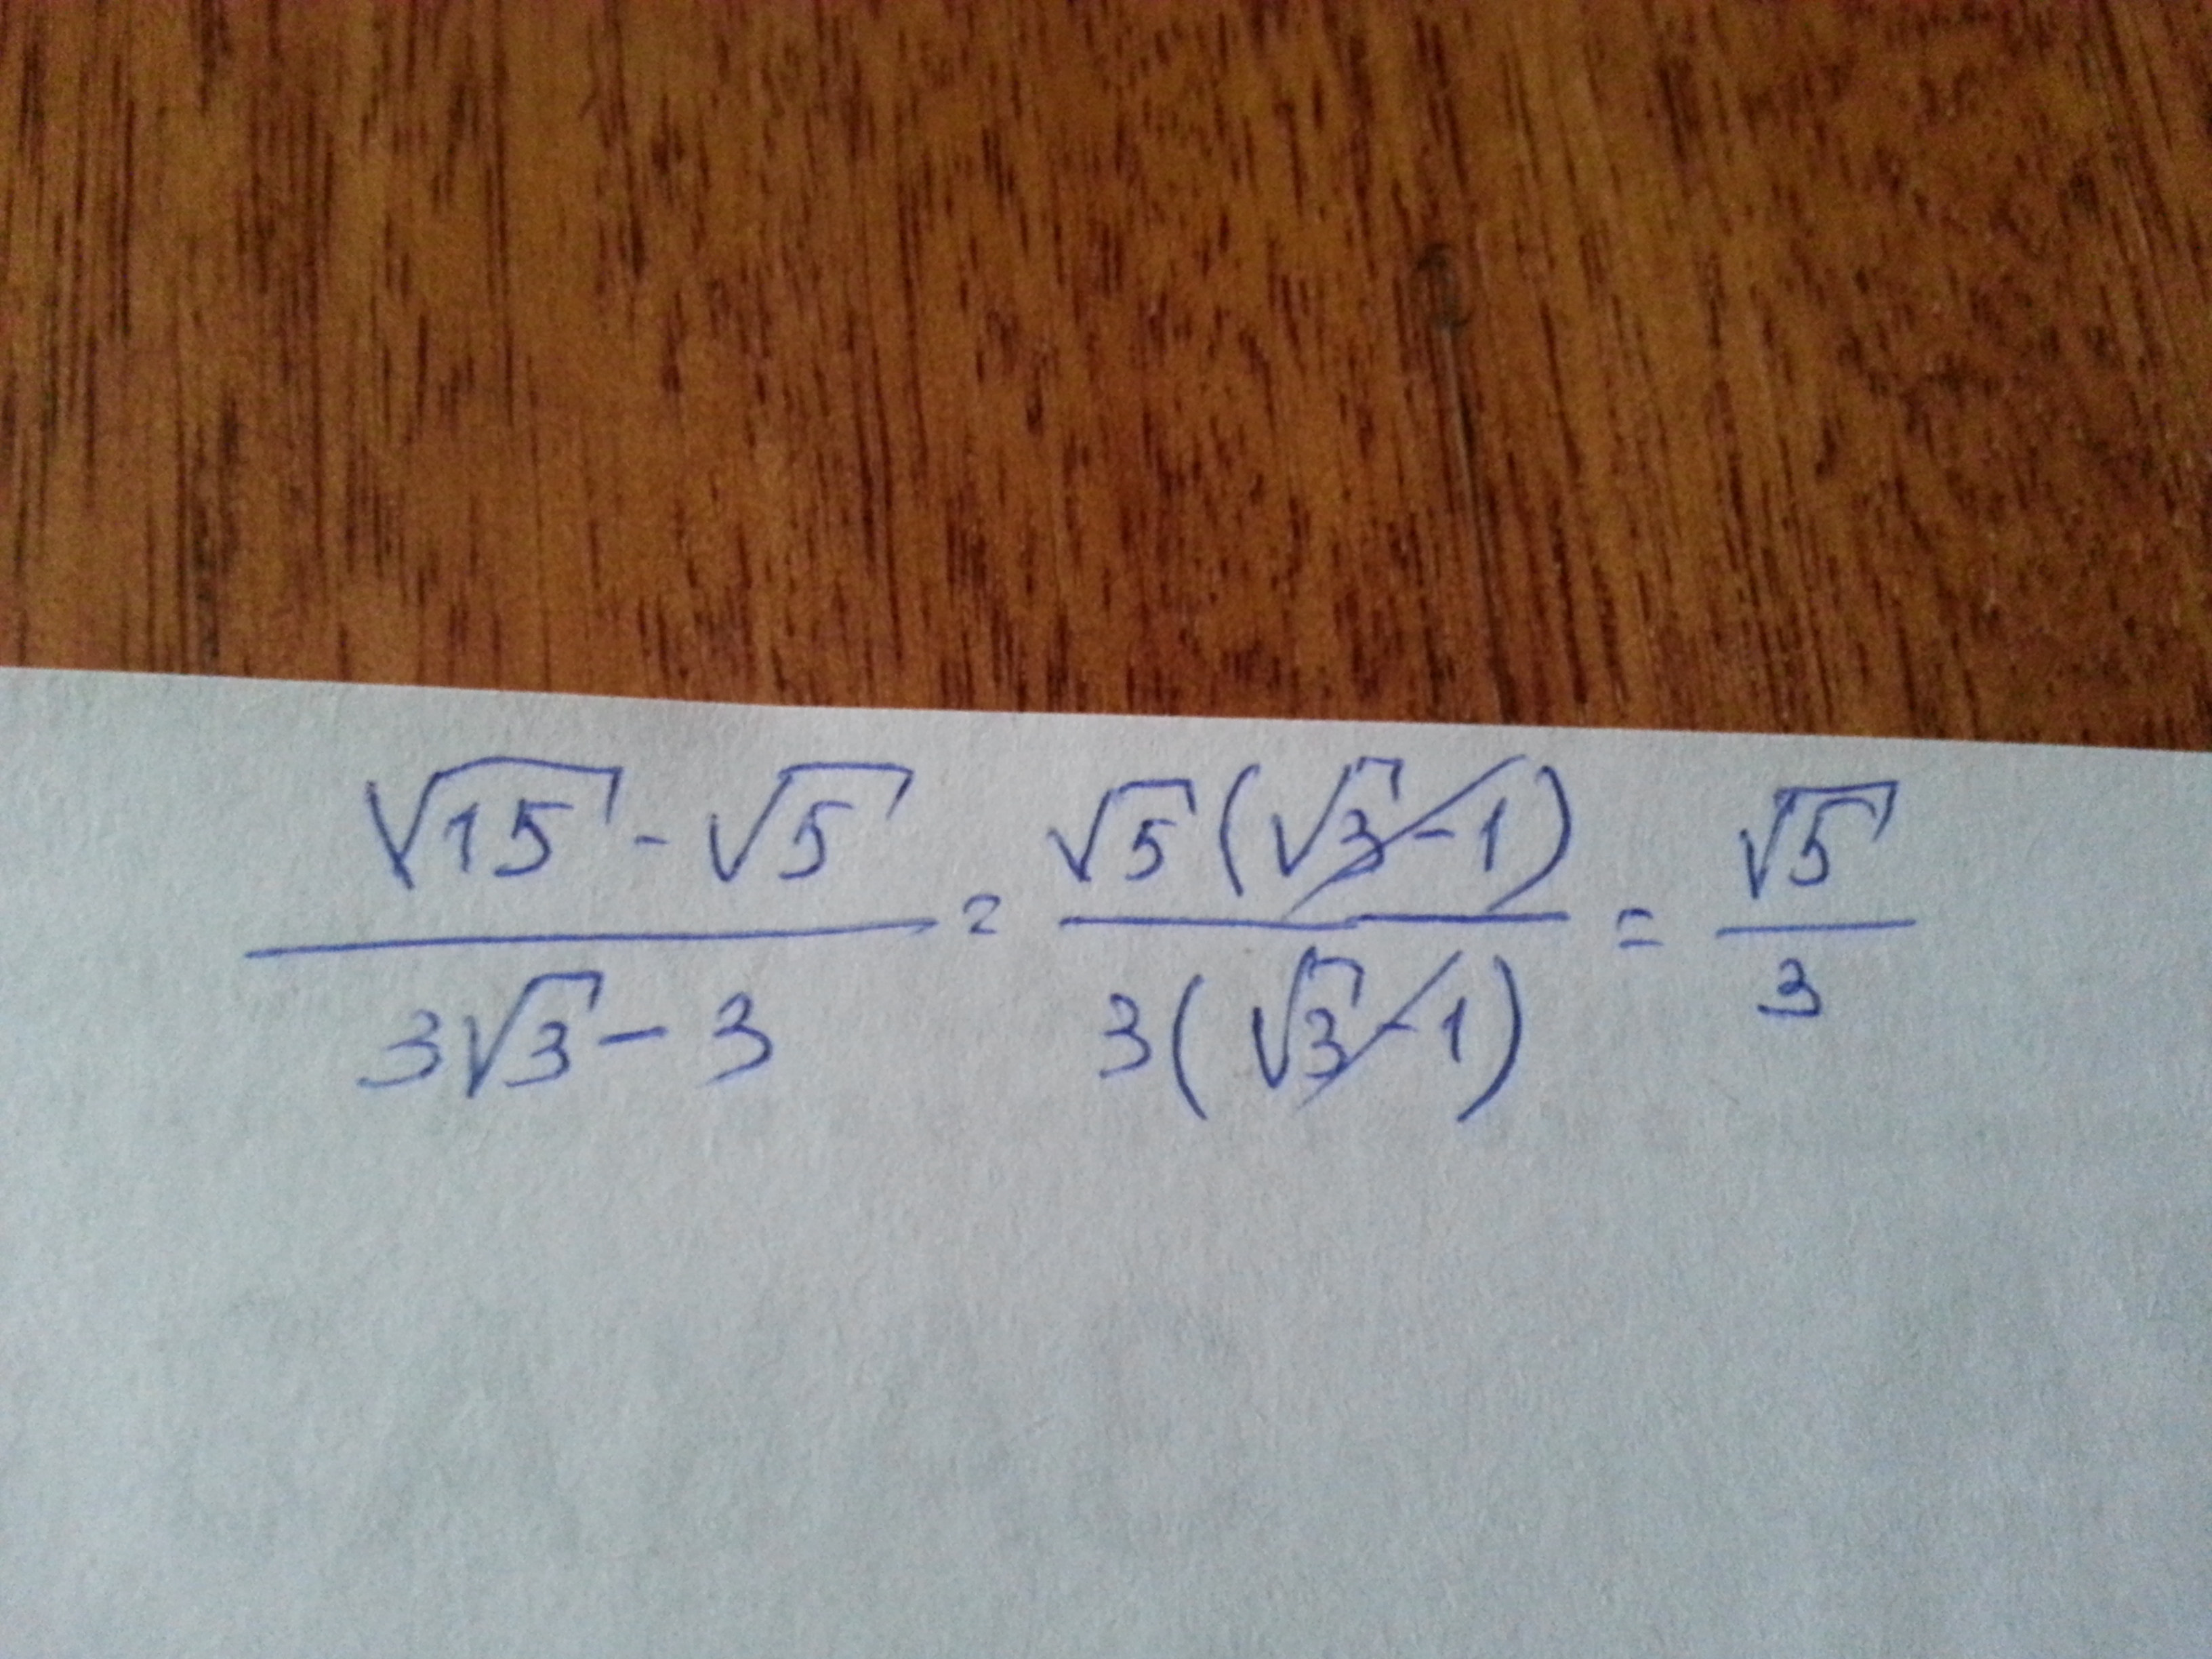 (√15 - √5)/(3√3 - 3) = (√5(√3 - 1))/(3(√3 - 1)) = √5/3